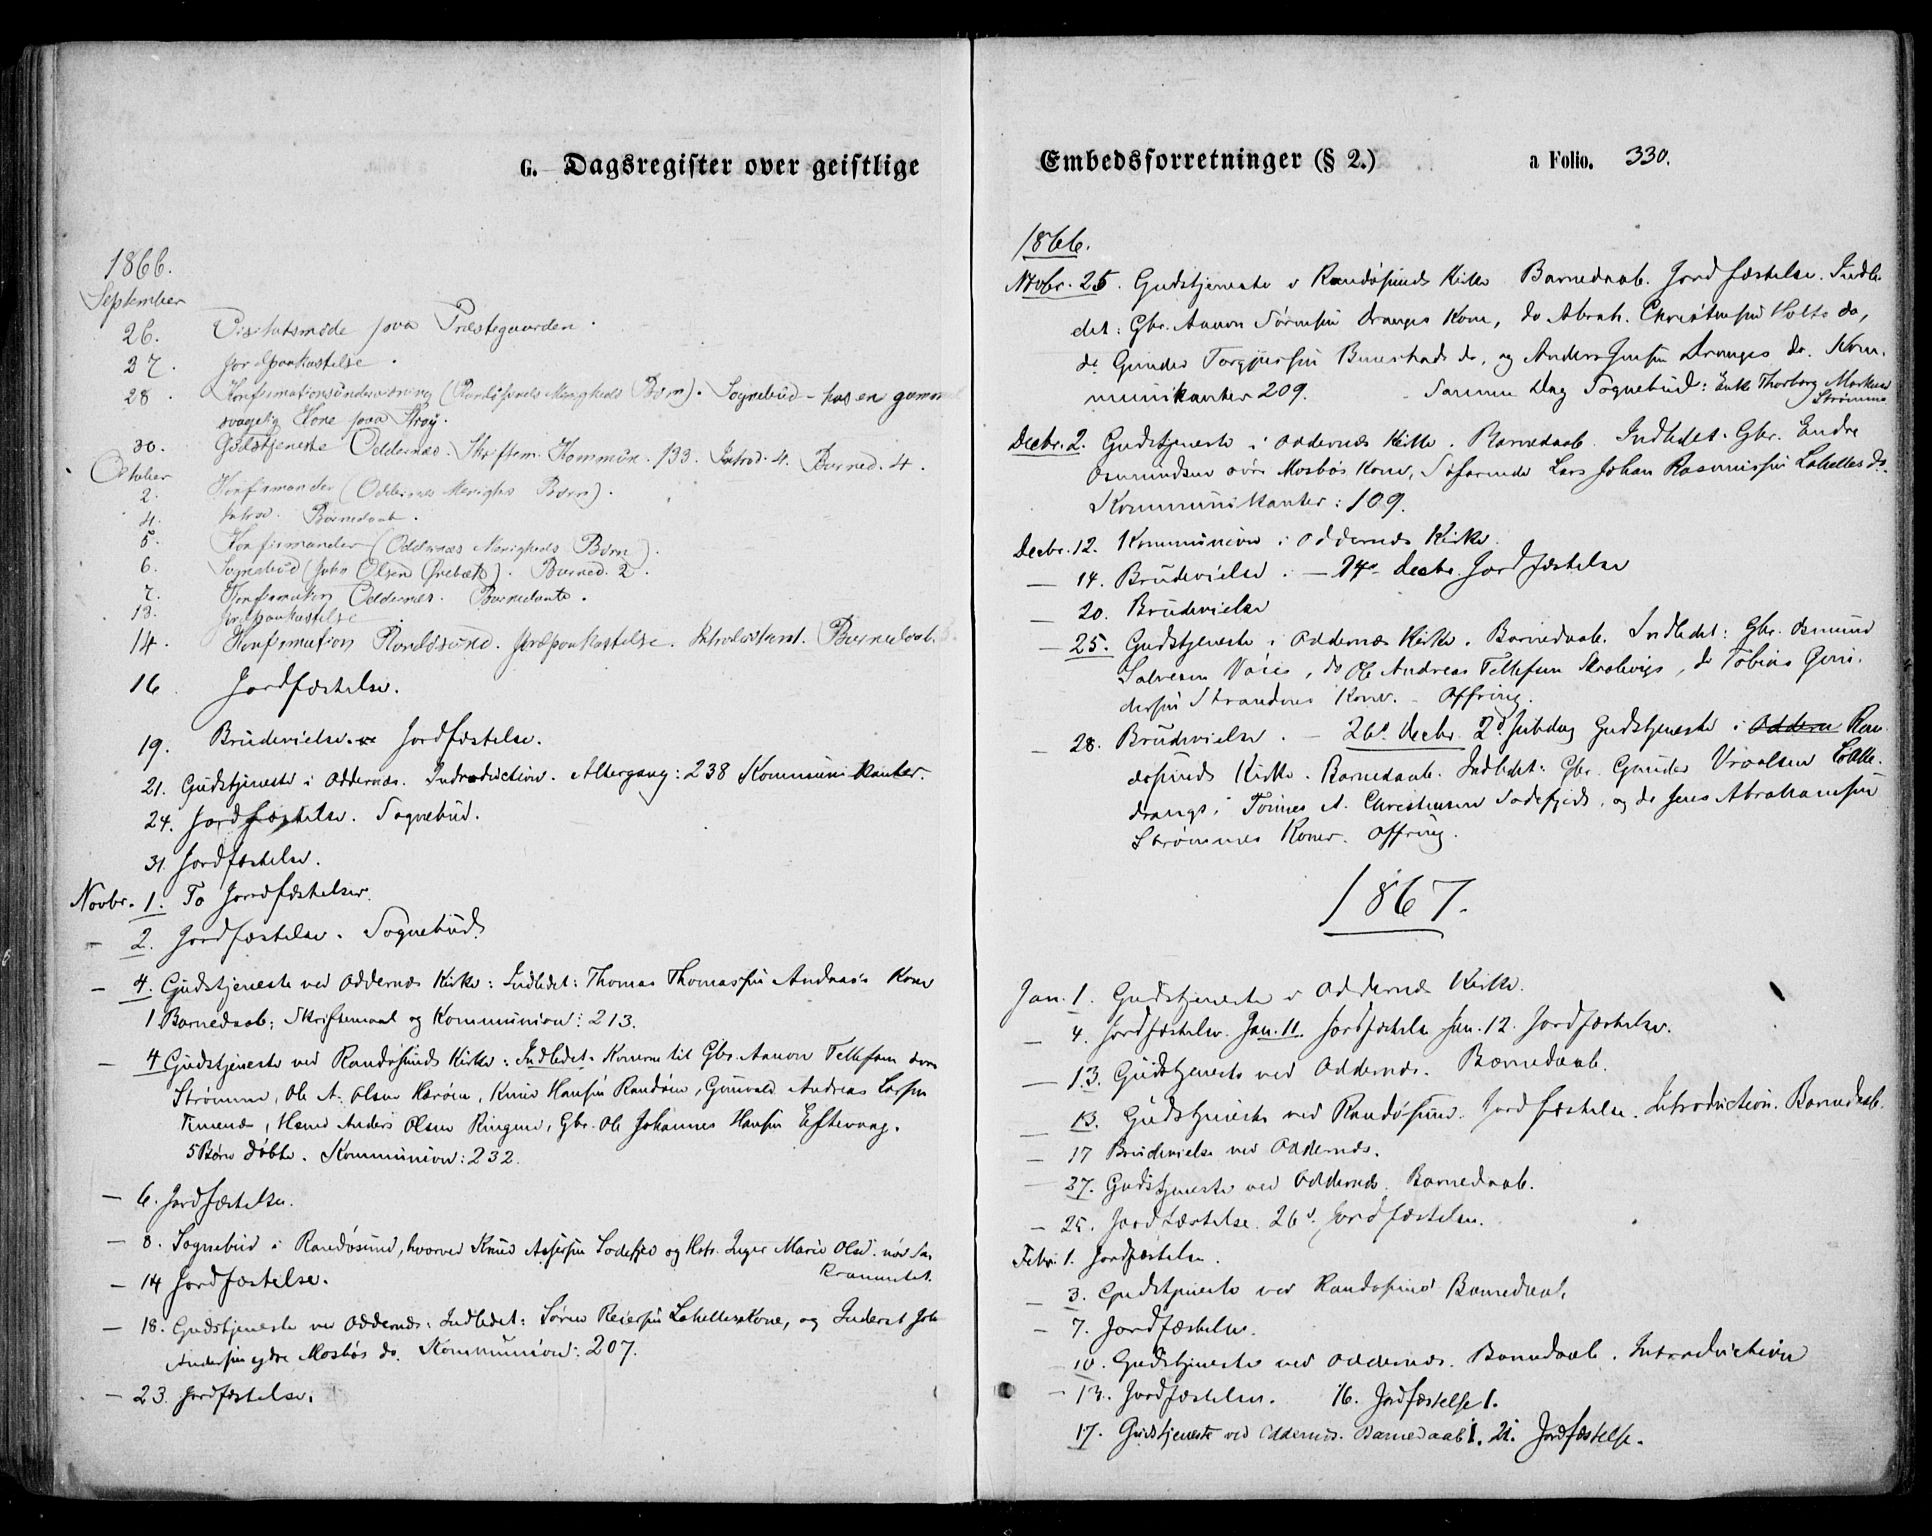 G. Dagsregister over geistlige
1866.
September
26. Visitatsmøde paa Præstegaarden.
27. Jordpaakastelse.
28. Konfirmationsundervisning (Randøsunds Menigheds Børn). Sognebud - hos en gammel
svagelig Kone paa Strøj.
30. Gudstjeneste Oddernæs. Skriftem. Kommun. 133. Introd. 4. Barned. 4.
Oktober
2. Konfirmander (Oddernæs Menighs Børn).
4. Introd. Barnedaab.
5. Konfirmander (Oddernæs Menigheds Børn).
6. Sognebud (John Olsen Ørebæk). Barned. 2.
7. Konfirmation Oddernæs. Barnedaab.
13. Jordpaakastelse
14. Konfirmation Randøsund. Jordpaakastelse. Introduktion. Barnedaab.
16. Jordfæstelse.
19. Brudevielse. Jordfæstelse.
21. Gudstjeneste i Oddernæs. Introduction. Altergang: 238 Kommunikanter.
24. Jordfæstelse. Sognebud.
31. Jordfæstelse.
Novbr. 1. To Jordfæstelser.
- 2. Jordfæstelse. Sognebud.
- 4. Gudstjeneste ved Oddernæs Kirke: Indledet: Thomas Thomassen Andaas's Kone
1 Barnedaab; Skriftemaal og Kommunion: 213.
- 4 Gudstjeneste ved Randøsunds Kirke: Indledet: Konerne til Gbr. Aanon Tellefsen
Strømme, Ole A. Olsen Herøen, Knud Hansen Randøen, Gunvald Andreas Larsen
Timenæs, Hmd Anders Olsen Ringen, Gbr. Ole Johannes Hansen Eftevaag.
5 Børn døbte. Kommunion: 232.
- 6. Jordfæstelse.
- 8. Sognebud i Randøsund, hvorved Knud Assersen Sodefjed og Hstr. Inger Marie Olsd. nød Sa-
kramentet.
- 14 Jordfæstelse.
- 18. Gudstjeneste ved Oddernæs: Indledet: Søren Reiersen Lahelles Kone, og Inderst Joh
Andersen ydre Mosbøs do. Kommunion: 207.
- 23. Jordfæstelse.
Embedsforretninger (§ 2.) a Folio. 330.
1866.
Novbr. 25. Gudstjeneste i Randøsunds Kirke Barnedaab. Jordfæstelse. Indle-
det: Gbr. Aanon Sørensen Dranges Kone, do Abrah. Christensen Holts do,
do Gunder Torgjersen Benestads do, og Anders Jensen Dranges do. Kom-
munikanter 209. Samme Dag Sognebud: Enke Thorborg Markus
Strømme
Decbr. 2. Gudstjeneste i Oddernæs Kirke. Barnedaab. Indledet: Gbr. Endre
Osmundsen øvre Mosbøs Kone, Søfarende Lars Johan Rasmussen Lahelles do.
Kommunikanter: 109.
Decbr. 12. Kommunion i Oddernæs Kirke.
- 14. Brudevielse. - 14de Decbr. Jordfæstelse
- 20. Brudevielse
- 25. Gudstjeneste i Oddernæs Kirke. Barnedaab. Indledet: Gbr. Osmund
Salvesen Vaies, do Ole Andreas Tellefsen Skraalevigs, do Tobias Gun-
dersen Strandenes Koner. - Offring.
- 28. Brudevielse. - 26de Decbr. 2d Juledag Gudstjeneste i Oddern Ran-
døsunds Kirke. Barnedaab. Indledet: Gbr. Gunder Vraalsen Lolle-
drangs, Tønnes A. Christensen Sodefjeds, og do Jens Abrahamsen
Strømmes Koner. Offring.
1867.
Jan. 1. Gudstjeneste i Oddernæs Kirke.
- 4. Jordfæstelse. Jan. 11. Jordfæstelse Jan. 12. Jordfæstelse.
- 13. Gudstjeneste ved Oddernæs. Barnedaab.
- 13. Gudstjeneste ved Randøsund. Jordfæstelse. Introduction. Barnedaab.
- 17 Brudevielse ved Oddernæs.
- 27. Gudstjeneste ved Oddernæs. Barnedaab.
- 25. Jordfæstelse. 26de Jordfæstelse.
Febr. 1. Jordfæstelse.
- 3. Gudstjeneste ved Randøsund Barnedaab.
- 7. Jordfæstelse.
- 10. Gudstjeneste ved Oddernæs. Barnedaab. Introduction
- 13. Jordfæstelse. 16. Jordfæstelse 1.
17. Gudstjeneste ved Oddernæs. Barnedaab 1. 21. Jordfæstelse.